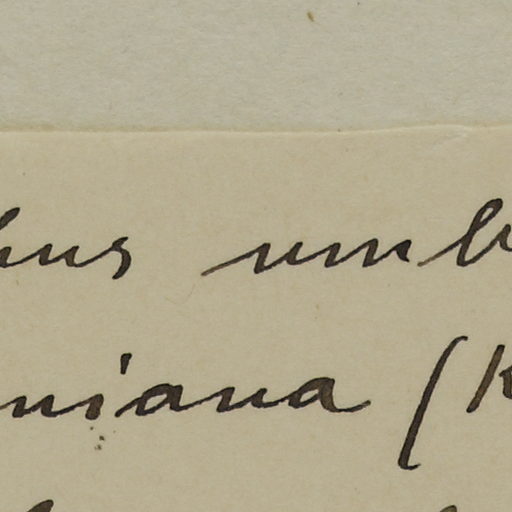 bus umb
niana (K